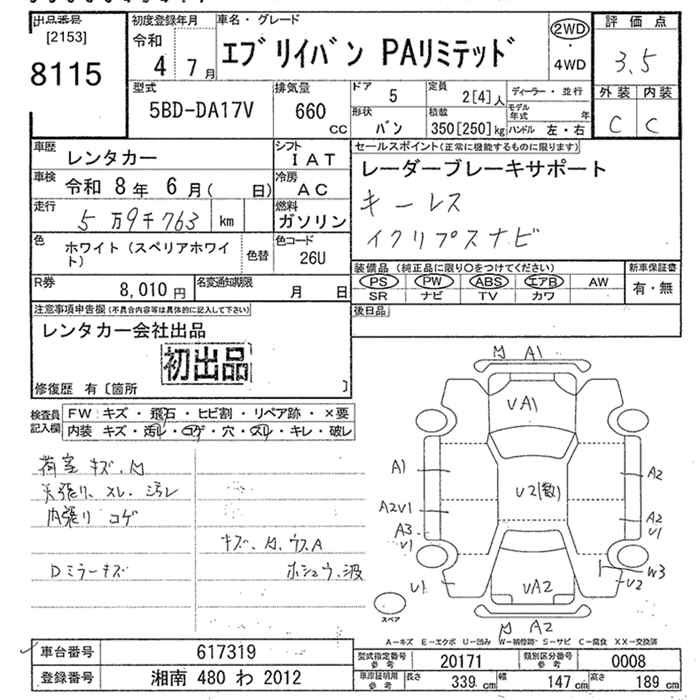 出品番号
[2153]
8115
初度登録年月
令和
4年 7月
車名・グレード
エブリイバン PAリミテッド
2WD
4WD
評価点
3.5
外装 内装
C C
型式
5BD-DA17V
排気量
660
CC
ドア
5
定員
2[4]人
ディーラー・並行
形状
バン
積載
350[250]kg
モデル年式 年
ハンドル 左・右
車歴
レンタカー
シフト
IAT
車検
令和 8年 6月( 日)
冷房
AC
走行
5万9千763 km
燃料
ガソリン
色
ホワイト(スペリアホワイト)
色替
色コード
26U
R券
8,010円
名変通知期限
月 日
セールスポイント(正常に機能するものに限ります)
レーダーブレーキサポート
キーレス
イクリプスナビ
装備品(純正品に限り〇をつけてください)
PS PW ABS エアB AW
SR ナビ TV カワ
新車保証書
有・無
後日品
注意事項申告欄(不具合内容等は具体的に記入して下さい)
レンタカー会社出品
初出品
修復歴 有〔箇所 〕
検査員記入欄
FW:キズ・飛石・ヒビ割・リペア跡・×要
内装 キズ・汚レ・コゲ・穴・スレ・キレ・破レ
荷室 キズ、
天張り、スレ、汚レ
内張り コゲ
キズ、
ウスA
Dミラーキズ
ホシュウ、波
A1
VA1
A1
A2
U2(数)
A2V1
A2
V1
A3
V1
W3
U1
U2
VA2
A2
スペア
A−キズ E−エクボ U−凹み W−補修跡 S−サビ C−腐食 XX−交換済
車台番号
617319
登録番号
湘南 480 わ 2012
型式指定番号
参考
20171
類別区分番号
参考
0008
車庫証明用
参考
長さ
339cm
幅
147cm
高さ
189cm